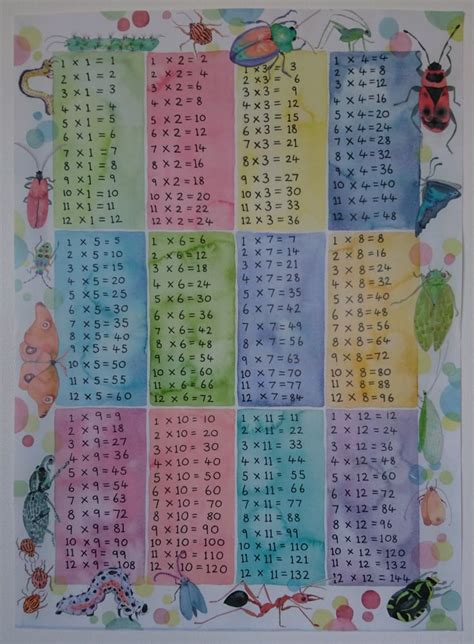 1 × 1 = 1
2 × 1 = 2
3 × 1 = 3
4 × 1 = 4
5 × 1 = 5
6 × 1 = 6
7 × 1 = 7
8 × 1 = 8
9 × 1 = 9
10 × 1 = 10
11 × 1 = 11
12 × 1 = 12
1 × 2 = 2
2 × 2 = 4
3 × 2 = 6
4 × 2 = 8
5 × 2 = 10
6 × 2 = 12
7 × 2 = 14
8 × 2 = 16
9 × 2 = 18
10 × 2 = 20
11 × 2 = 22
12 × 2 = 24
1 × 3 = 3
2 × 3 = 6
3 × 3 = 9
4 × 3 = 12
5 × 3 = 15
6 × 3 = 18
7 × 3 = 21
8 × 3 = 24
9 × 3 = 27
10 × 3 = 30
11 × 3 = 33
12 × 3 = 36
1 × 4 = 4
2 × 4 = 8
3 × 4 = 12
4 × 4 = 16
5 × 4 = 20
6 × 4 = 24
7 × 4 = 28
8 × 4 = 32
9 × 4 = 36
10 × 4 = 40
11 × 4 = 44
12 × 4 = 48
1 × 5 = 5
2 × 5 = 10
3 × 5 = 15
4 × 5 = 20
5 × 5 = 25
6 × 5 = 30
7 × 5 = 35
8 × 5 = 40
9 × 5 = 45
10 × 5 = 50
11 × 5 = 55
12 × 5 = 60
1 × 6 = 6
2 × 6 = 12
3 × 6 = 18
4 × 6 = 24
5 × 6 = 30
6 × 6 = 36
7 × 6 = 42
8 × 6 = 48
9 × 6 = 54
10 × 6 = 60
11 × 6 = 66
12 × 6 = 72
1 × 7 = 7
2 × 7 = 14
3 × 7 = 21
4 × 7 = 28
5 × 7 = 35
6 × 7 = 42
7 × 7 = 49
8 × 7 = 56
9 × 7 = 63
10 × 7 = 70
11 × 7 = 77
12 × 7 = 84
1 × 8 = 8
2 × 8 = 16
3 × 8 = 24
4 × 8 = 32
5 × 8 = 40
6 × 8 = 48
7 × 8 = 56
8 × 8 = 64
9 × 8 = 72
10 × 8 = 80
11 × 8 = 88
12 × 8 = 96
1 × 9 = 9
2 × 9 = 18
3 × 9 = 27
4 × 9 = 36
5 × 9 = 45
6 × 9 = 54
7 × 9 = 63
8 × 9 = 72
9 × 9 = 81
10 × 9 = 90
11 × 9 = 99
12 × 9 = 108
1 × 10 = 10
2 × 10 = 20
3 × 10 = 30
4 × 10 = 40
5 × 10 = 50
6 × 10 = 60
7 × 10 = 70
8 × 10 = 80
9 × 10 = 90
10 × 10 = 100
11 × 10 = 110
12 × 10 = 120
1 × 11 = 11
2 × 11 = 22
3 × 11 = 33
4 × 11 = 44
5 × 11 = 55
6 × 11 = 66
7 × 11 = 77
8 × 11 = 88
9 × 11 = 99
10 × 11 = 110
11 × 11 = 121
12 × 11 = 132
1 × 12 = 12
2 × 12 = 24
3 × 12 = 36
4 × 12 = 48
5 × 12 = 60
6 × 12 = 72
7 × 12 = 84
8 × 12 = 96
9 × 12 = 108
10 × 12 = 120
11 × 12 = 132
12 × 12 = 144